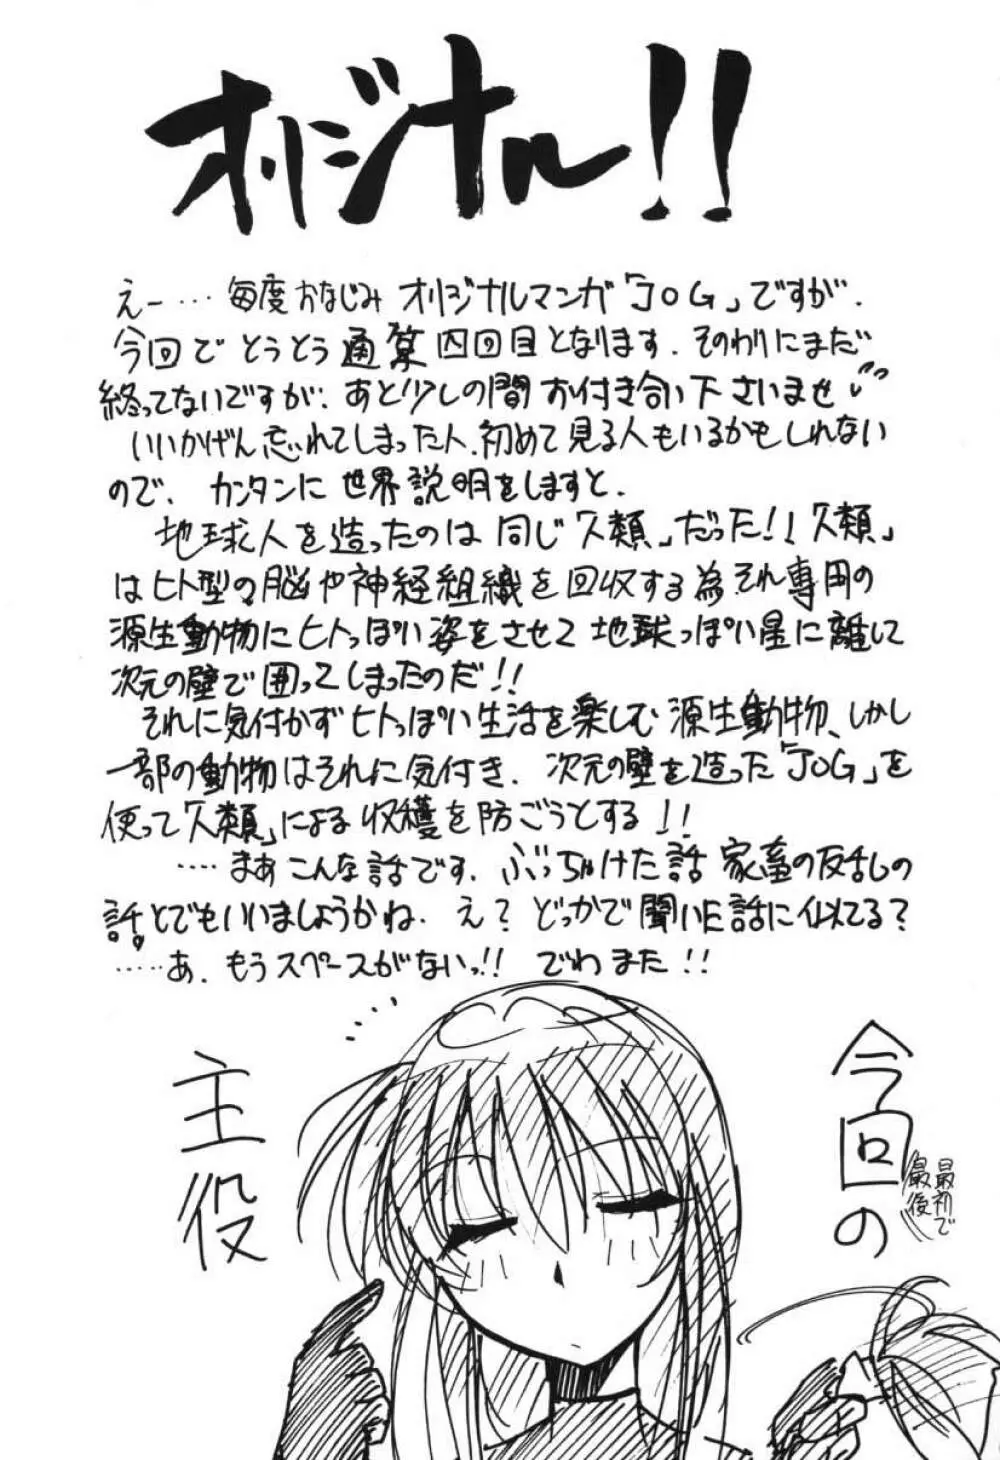 オリジナル!!
えー‥‥毎度おなじみオリジナルマンガ「JOG」ですが、
今回でとうとう通算四回目となります。そのわりにまだ
終ってないですが、あと少しの間お付き合い下さいませ
いいかげん忘れてしまった人、初めて見る人もいるかもしれない
ので、カンタンに世界説明をしますと、
地球人を造ったのは同じ「人類」だった!!「人類」
はヒト型の脳や神経組織を回収する為それ専用の
源生動物にヒトっぽい姿をさせて地球っぽい星に離して
次元の壁で囲ってしまったのだ!!
それに気付かずヒトっぽい生活を楽しむ源生動物、しかし
一部の動物はそれに気付き、次元の壁を造った「JOG」を
使って「人類」による収穫を防ごうとする!!
‥‥まあこんな話です。ぶっちゃけた話家畜の反乱の
話とでもいいましょうかね。え?どっかで聞いた話に似てる?
‥‥‥あ、もうスペースがないっ!!でわまた!!
今回の
最初で
最後
主役